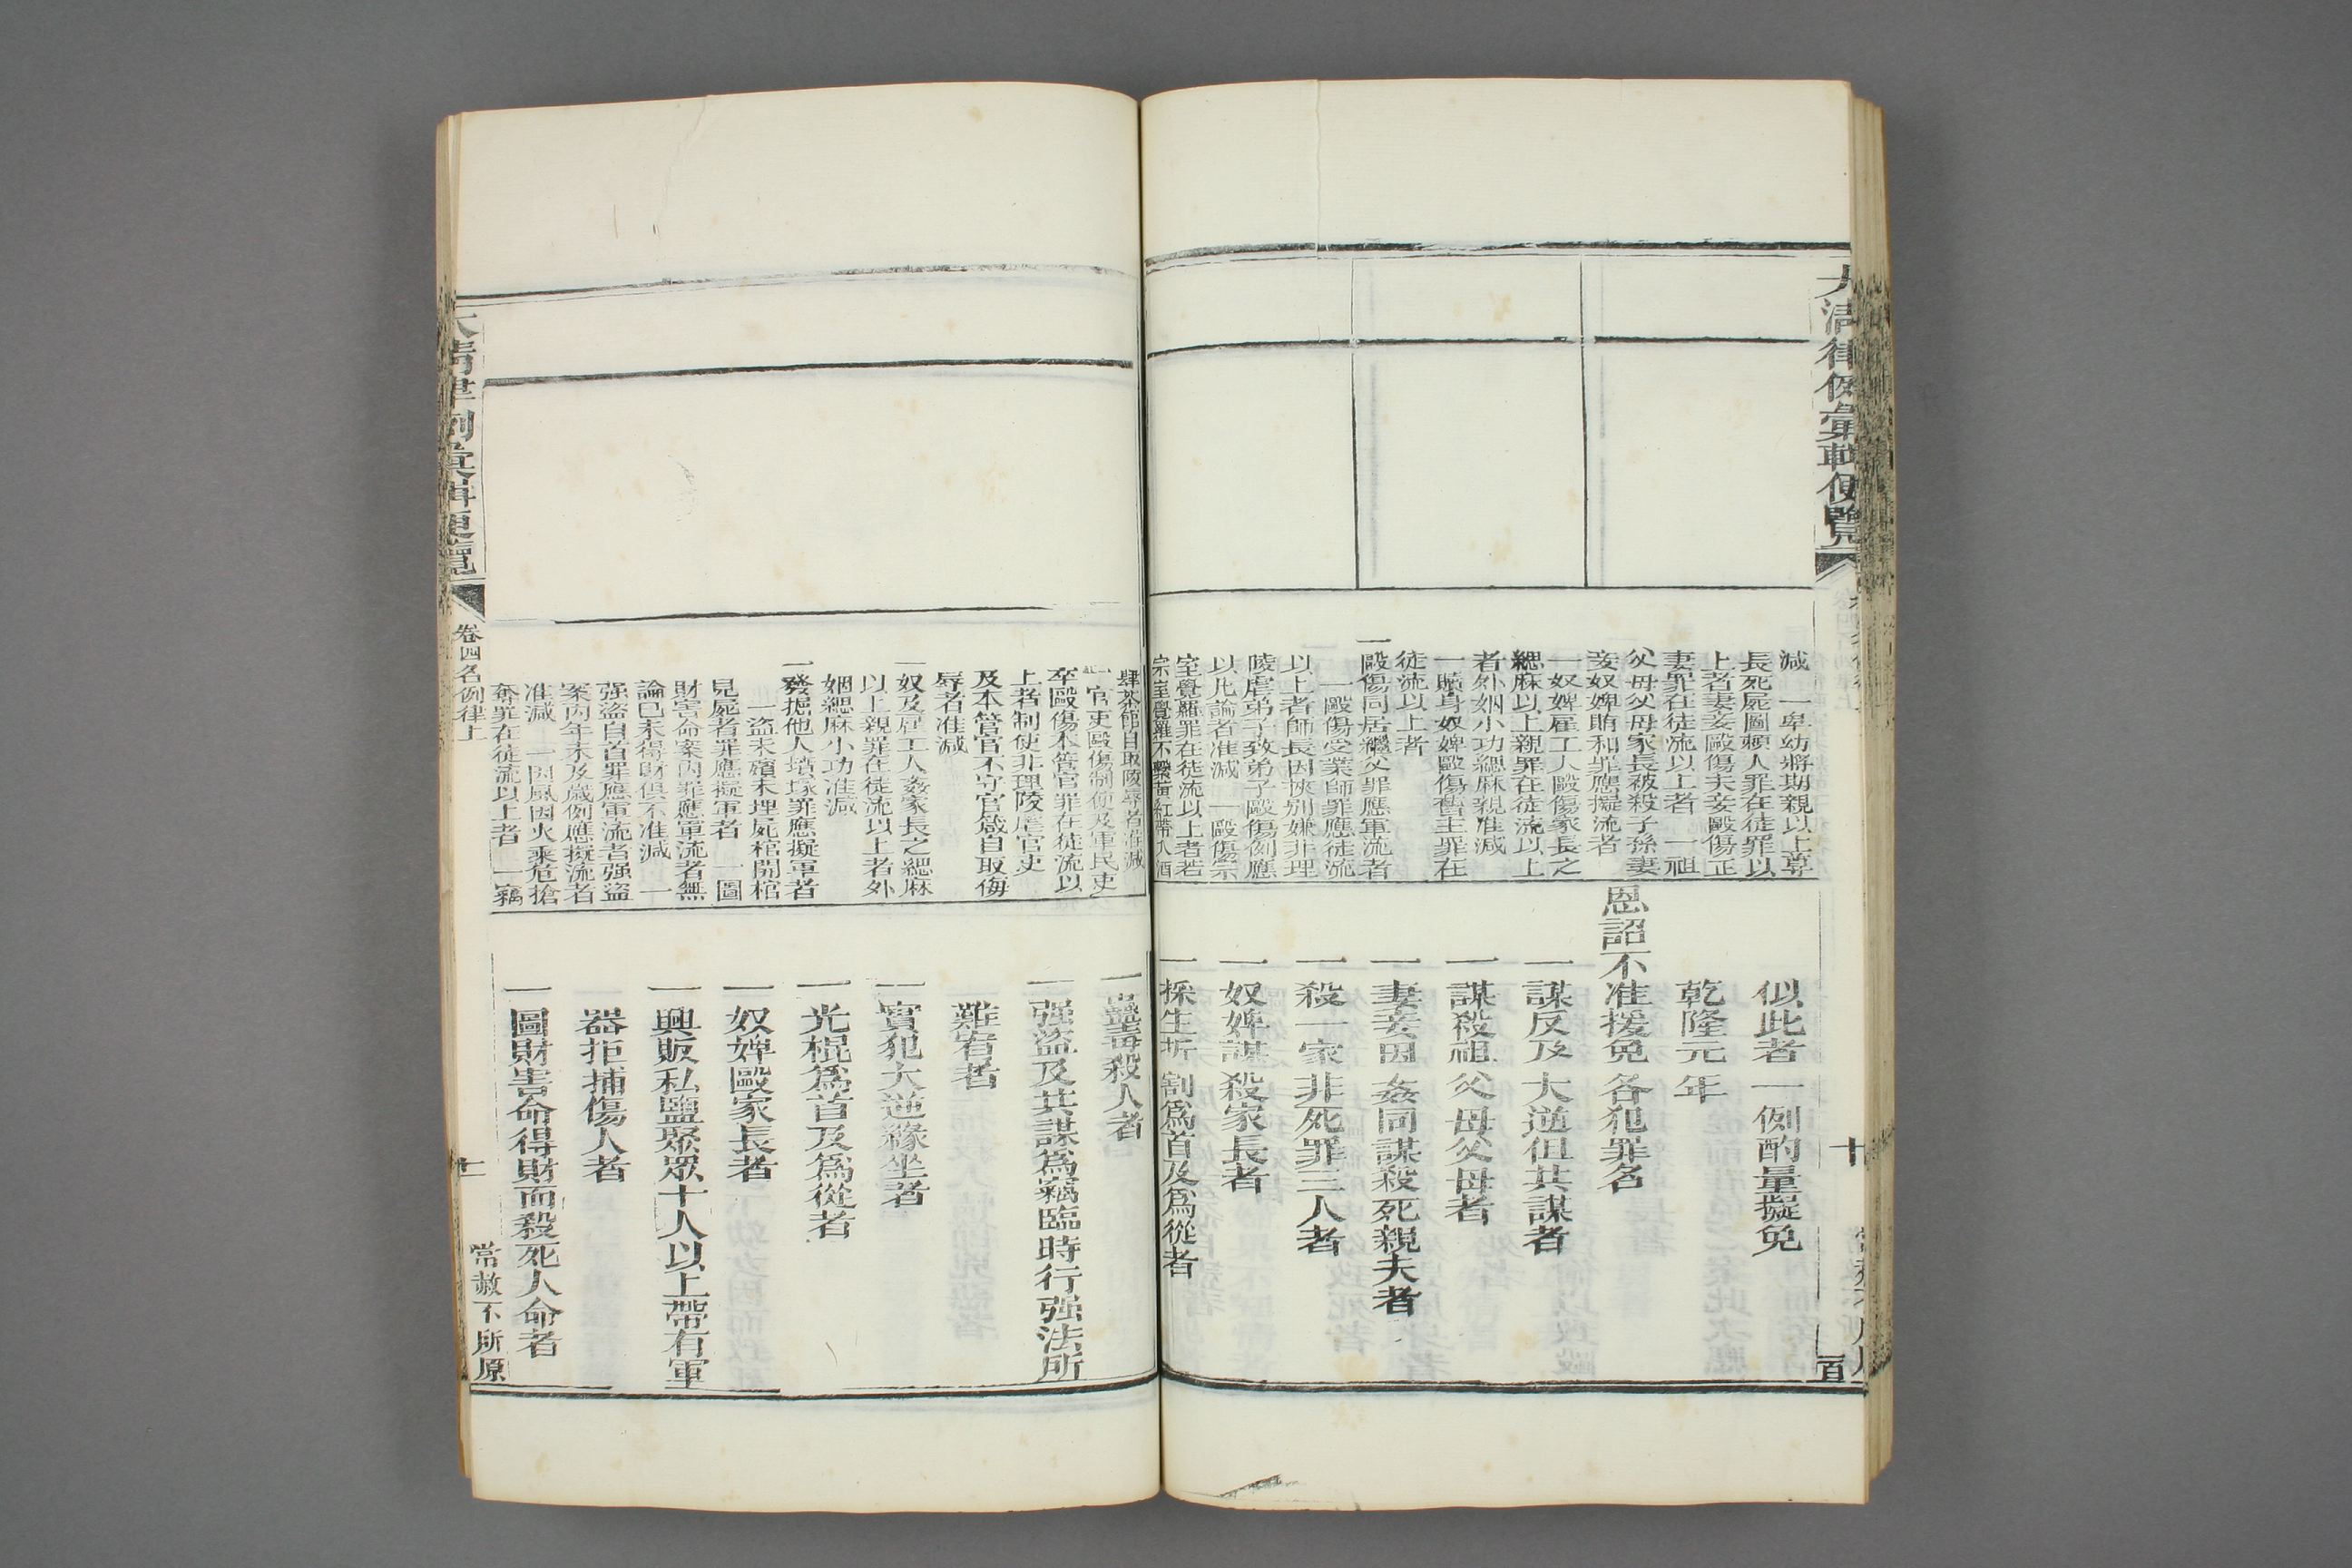 大清律例彙輯便覽
減　一卑幼將期親以上尊
長死屍圖賴人罪在徒罪以
上者妻妾毆傷夫妾毆傷正
妻罪在徒流以上者　一祖
父母父母家長被殺子孫妻
妾奴婢賄和罪應擬流者
一奴婢雇工人毆傷家長之
緦麻以上親罪在徒流以上
者外姻小功緦麻親准減
一贖身奴婢毆傷舊主罪在
徒流以上者
一毆傷同居繼父罪應軍流者
一毆傷受業師罪應徒流
以上者師長因挾別嫌非理
陵虐弟子致弟子毆傷例應
以凡論者准減　一毆傷宗
室覺羅罪在徒流以上者若
宗室覺羅不繫黃紅帶入酒
似此者一例酌量擬免
乾隆元年
恩詔不准援免各犯罪名
一謀反及大逆但共謀者
一謀殺祖父母父母者
一妻妾因姦同謀殺死親夫者
一殺一家非死罪三人者
一奴婢謀殺家長者
一採生折割爲首及爲從者
十
百
肆茶館自取陵辱者准減
一官吏毆傷制使及軍民吏
卒毆傷本管官罪在徒流以
上者制使非理陵虐官吏
及本管官不守官箴自取侮
辱者准減
一奴及雇工人姦家長之緦麻
以上親罪在徒流以上者外
姻緦麻小功准減
一發掘他人墳塚罪應擬軍者
一盜未殯未埋屍棺開棺
見屍者罪應擬軍者　一圖
財害命案內罪應軍流者無
論已未得財俱不准減　一
强盜自首罪應軍流者强盜
案內年未及歲例應擬流者
准減　一因風因火乘危搶
奪罪在徒流以上者　一竊
一蠱毒殺人者
一强盜及共謀爲竊臨時行强法所
難宥者
一實犯大逆緣坐者
一光棍爲首及爲從者
一奴婢毆家長者
一興販私鹽聚眾十人以上帶有軍
器拒捕傷人者
一圖財害命得財而殺死人命者
大清律例彙輯便覽
卷四名例律上
十一
常赦不所原